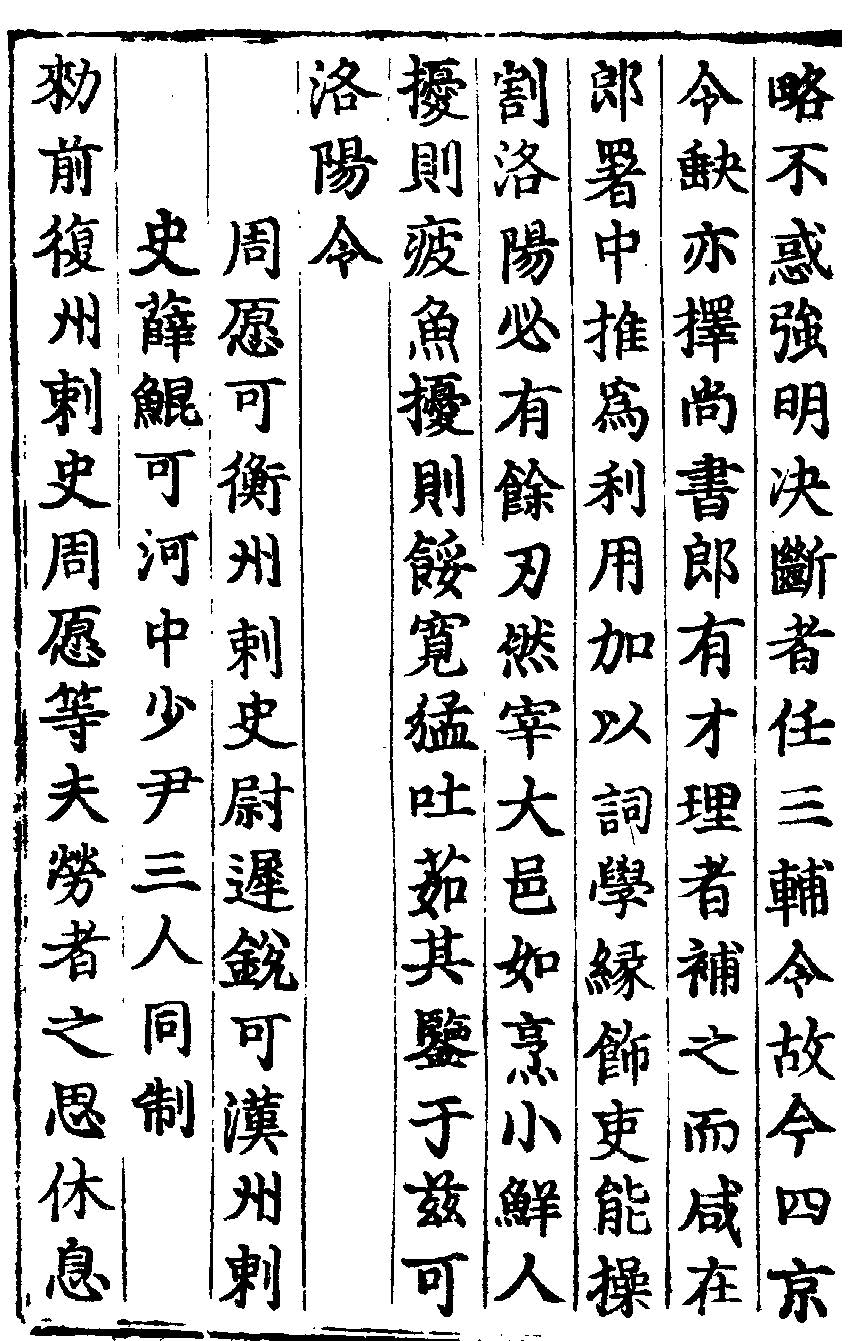 略不惑強明決斷者任三輔令故今四京
令缺亦擇尚書郎有才理者補之而咸在
郎署中推爲利用加以詞學緣飾吏能操
割洛陽必有餘刃然宰大邑如烹小鮮人
擾則疲魚擾則餒寬猛吐茹其鑒于茲可
洛陽令
周愿可衡州刺史尉遲銳可漢州刺
史薛鯤可河中少尹三人同制
勑前復州刺史周愿等夫勞者之思休息